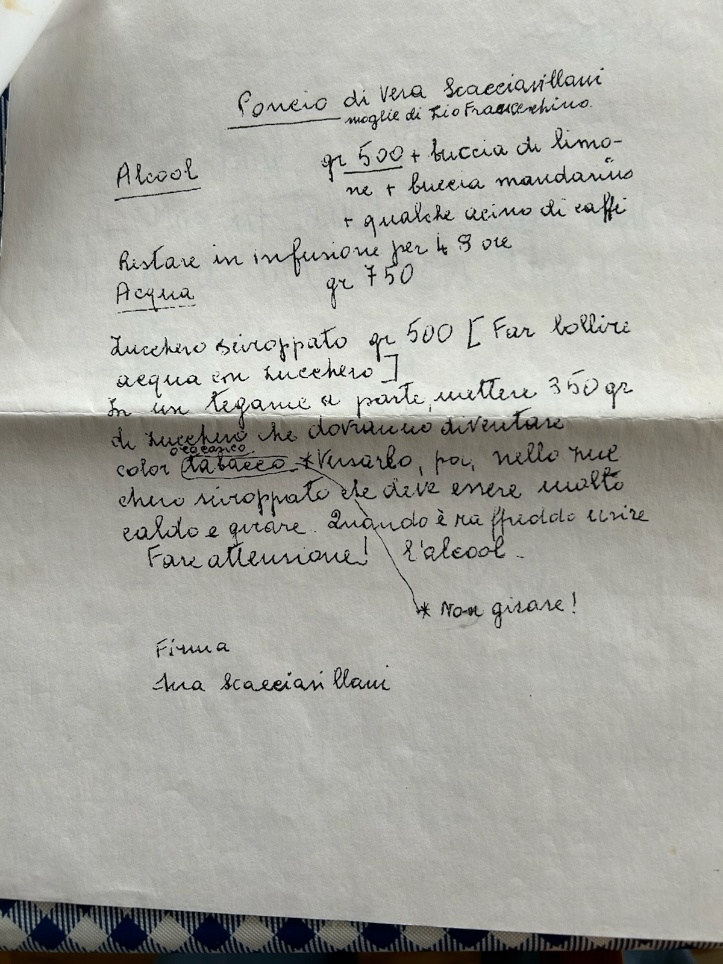 Poncio di Vera Scacciavillani
moglie di Zio Franceschino.
Alcool gr 500 + buccia di limo-
ne + buccia mandarino
+ qualche acino di caffè
Restare in infusione per 48 ore
Acqua gr 750
Zucchero sciroppato gr 500 [Far bollire
acqua con zucchero]
In un tegame a parte, mettere 350 gr
di zucchero che dovranno diventare
color tabacco * Versarlo, poi, nello zuc
chero sciroppato che deve essere molto
caldo e girare. Quando è raffreddo unire
Fare attenzione! l'alcool.
* Non girare!
Firma
Scacciavillani